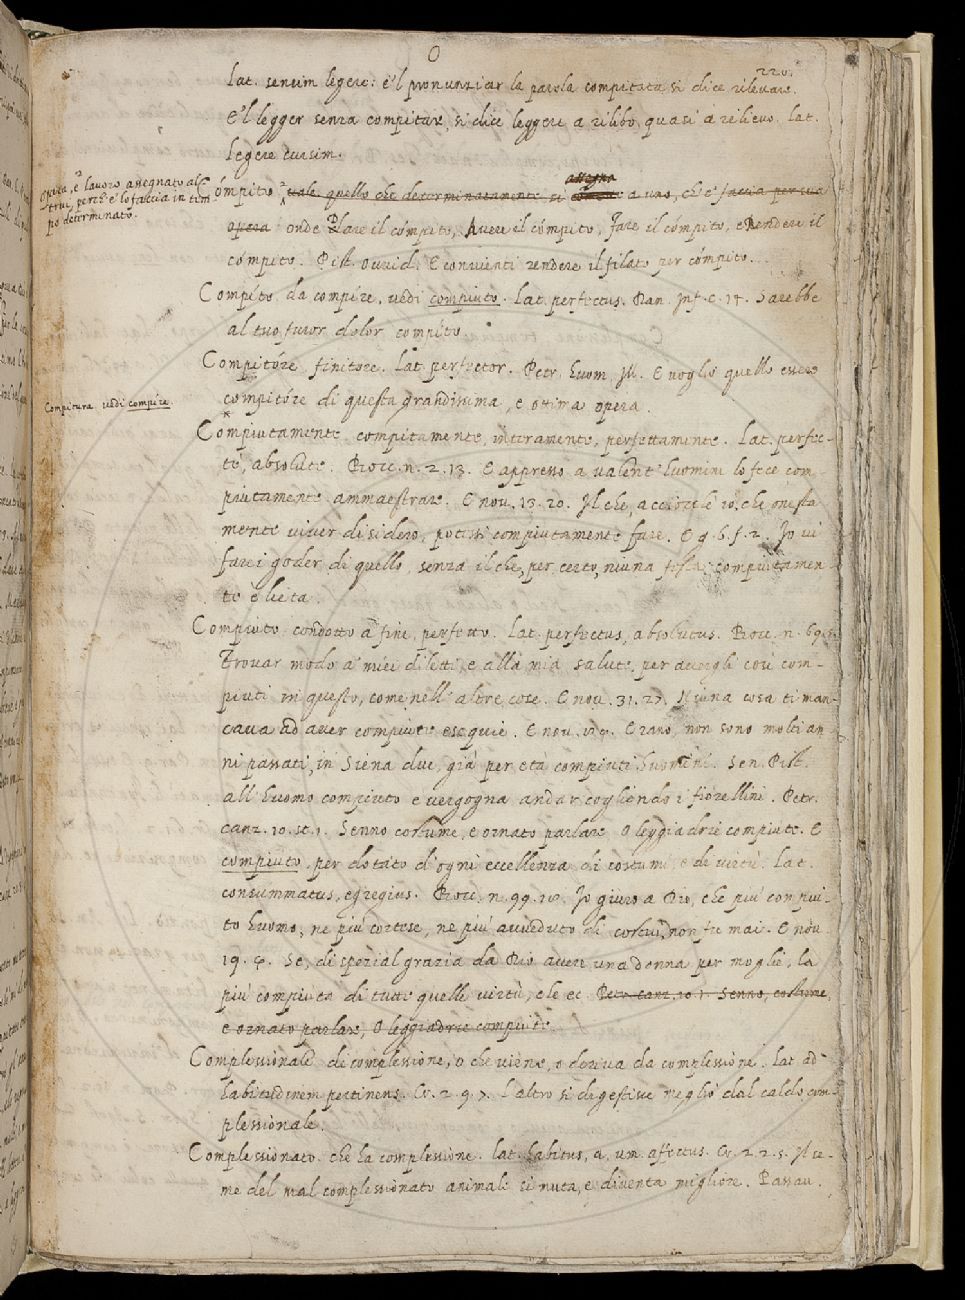 O
220.
Lat. sensim legere: e 'l pronunziar la parola compitata si dice rilevare.
E 'l legger senza compitare, si dice leggere a rilibo, quasi a relievo. Lat.
Legere cursim.
Opera, e lavoro assegnato al-
trui, perchè lo faccia in tem-
po determinato.
assegna
Cómpito vale quello che determinatamente si a uno, che e' faccia per sua
opera onde Dare il cómpito, Avere il cómpito, Fare il cómpito, e Rendere il
cómpito. Pist. Ovvid. E convienti rendere il filato per cómpito...
Compíto. da compíre, vedi compiuto. Lat. perfectus. Dan. Inf. c. 14. Sarebbe
al tuo furor dolor compíto.
Compitóre finitore. Lat. perfector. Petr. huom. Ill. E voglio quello essere
compitóre di questa grandissima, e ottima opera.
Compitura vedi compíre.
Compiutamente. compitamente, interamente, perfettamente. Lat. perfec-
tè, absolute. Bocc. n. 2. 13. E appresso a valenti huomini lo fece com-
piutamente ammaestrare. E nov. 13. 20. Il che, acciocchè io, che onesta-
mente viver disidero, potessi compiutamente fare. E g. 6. f. 2. Io vi
farei goder di quello, senza il che, per certo, niuna festa compiutamen-
te è lieta.
Compiuto. condotto a fine, perfetto. Lat. perfectus, absolutus. Bocc. n. 69. 5.
Trovar modo a' miei diletti, e alla mia salute, per avergli così com-
piuti in questo, come nell' altre cose. E nov. 31. 27. Niuna cosa ti man-
cava ad aver compiute esequie. E nov. Erano, non sono molti an-
ni passati, in Siena due, già per età compiuti huomini. Sen. Pist.
all' huomo compiuto è vergogna andar cogliendo i fiorellini. Petr.
canz. 10. st. 1. Senno costume, e ornato parlare O leggiadrie compiute. E
compiuto per dotato d' ogni eccellenza di costumi e di virtù. Lat.
consummatus, egregius. Bocc. n. 99. Io giuro a Dio, che più compiu-
to huomo, nè più cortese, nè più avveduto di costui, non fu mai. E nov.
19. 4. Se, di spezial grazia da Dio avere una donna per moglie, la
più compiuta di tutte quelle virtù, che ec. Petr. canz. 10. 1. Senno, costume,
e ornato parlare, O leggiadrie compiute.
Complessionale di complessione, o che viene, o deriva da complessione. Lat. ad
habitudinem pertinens. Cr. 2. 9. 7. L'altro si digestisce meglio dal caldo com-
plessionale.
Complessionato. che ha complessione. Lat. habitus, a, um. affectus. Cr. 2. 2. 5. Il se-
me del mal complessionato animale si muta, e diventa migliore. Passav.